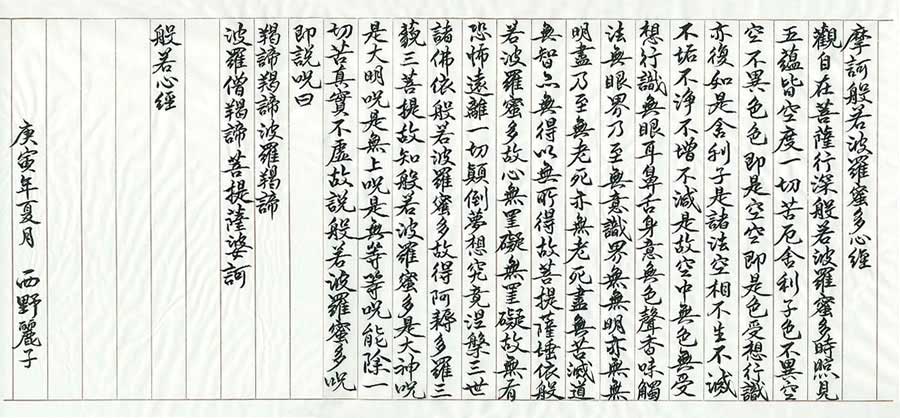 摩訶般若波羅蜜多心經
觀自在菩薩行深般若波羅蜜多時照見
五蘊皆空度一切苦厄舍利子色不異空
空不異色色即是空空即是色受想行識
亦復如是舍利子是諸法空相不生不滅
不垢不淨不增不減是故空中無色無受
想行識無眼耳鼻舌身意無色聲香味觸
法無眼界乃至無意識界無無明亦無無
明盡乃至無老死亦無老死盡無苦滅道
無智亦無得以無所得故菩提薩埵依般
若波羅蜜多故心無罣礙無罣礙故無有
恐怖遠離一切顛倒夢想究竟涅槃三世
諸佛依般若波羅蜜多故得阿耨多羅三
藐三菩提故知般若波羅蜜多是大神呪
是大明呪是無上呪是無等等呪能除一
切苦真實不虛故説般若波羅蜜多呪
即説呪曰
羯諦羯諦波羅羯諦
波羅僧羯諦菩提薩婆訶
般若心經
庚寅年夏月 西野麗子